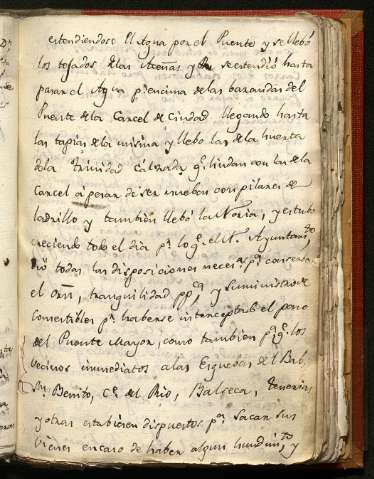 estendiendose el Agua por el Puente y se llebó
los tejados de las Aceñas y se estendió hasta
pasar el Agua p.r encima de las barandas del
Puente de la Carcel de Ciudad llegando hasta
las tapias de la misma y llebo las de la huerta
de la Trinidad Calzada q.e lindan con las de la
Carcel a pesar de ser nuebas con pilares de
ladrillo y tambien llebó la Noria, y estubo
creciendo todo el dia p.r lo q.e el Ayuntam.to
dió todas las disposiciones neces.s p.a conserbar
el orn, tranquilidad pp.ca y suministro de
comestibles p.r haberse interceptado el paso
del Puente Mayor, como tambien p.a q.e los
vecinos inmediatos a las Esguebas del
Sn. Benito, C.e del Rio, Balseca, Tenerias
y otras estubiesen dispuestos p.a sacar sus
bienes en caso de haber algun hundim.to y